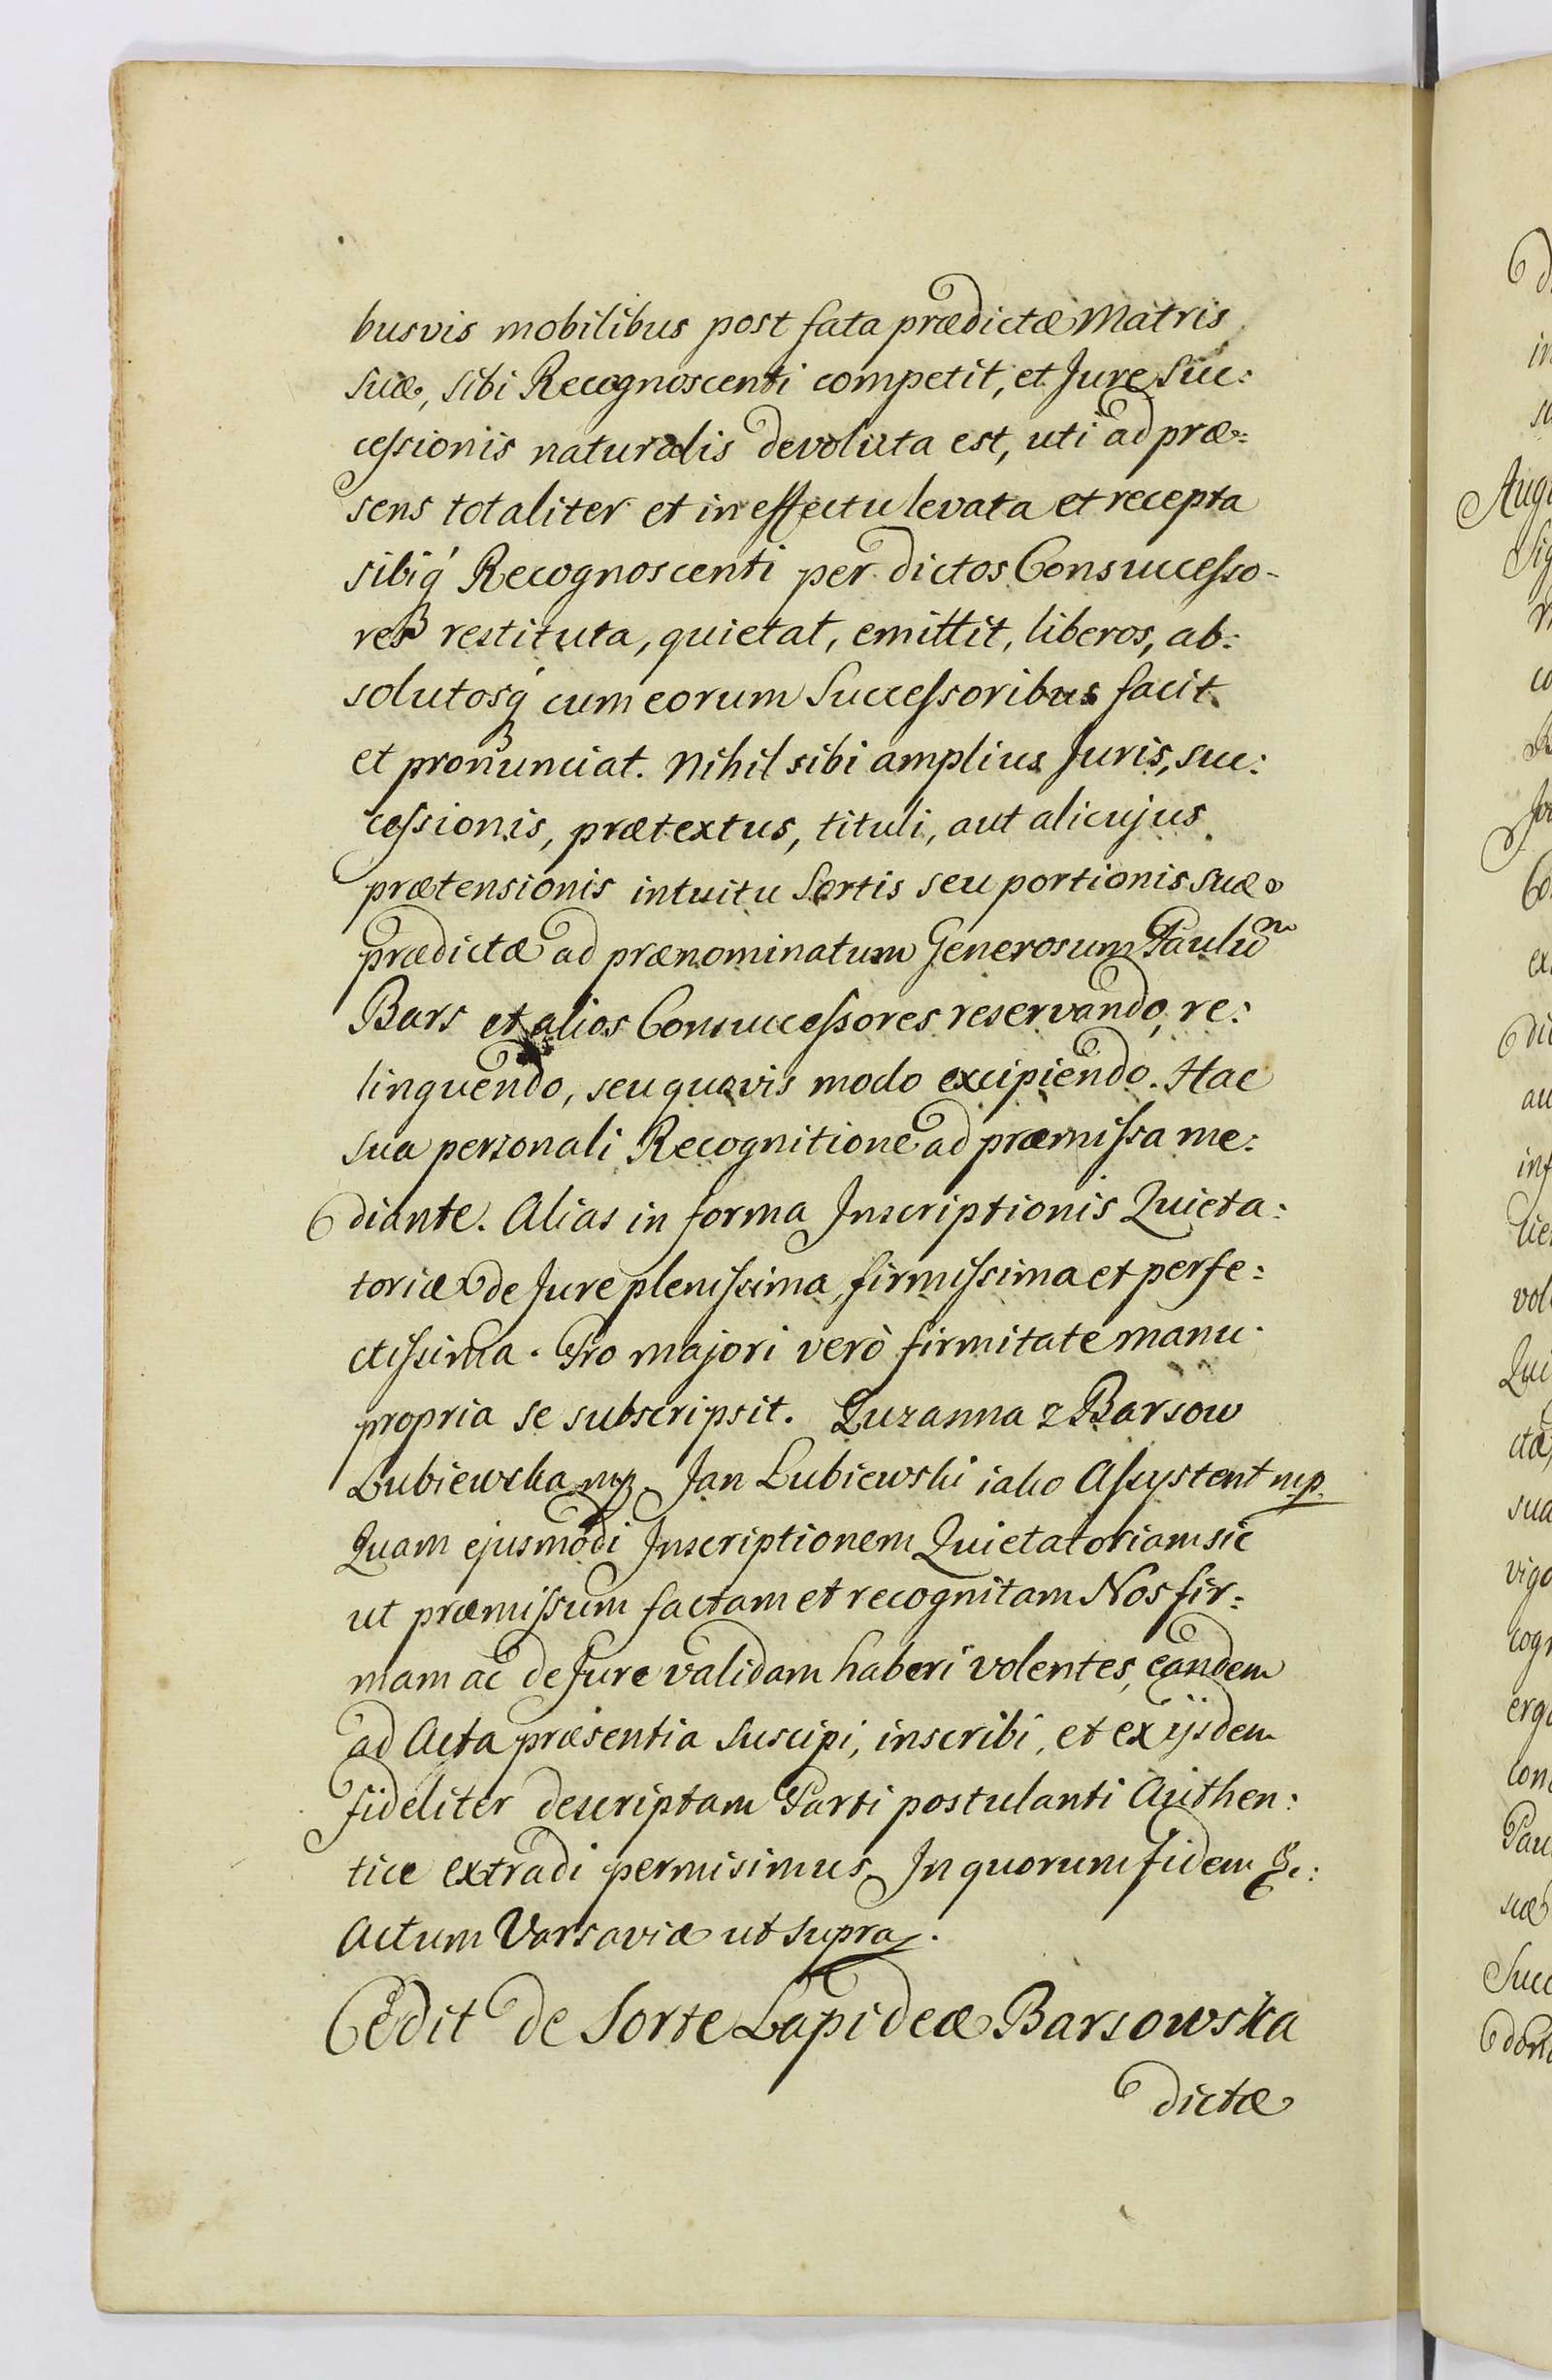 busvis mobilibus post fata prædictæ Matris
suæ, sibi Recognoscenti competit, et Jure suc:
cessionis naturalis devoluta est, uti ad præ:
sens totaliter et in effectu levata et recepta
sibiq́ Recognoscenti per dictos Consuccesso-
res restituta, quietat, emittit, liberos, ab:
solutosq́ cum eorum Successoribus facit
et pronunciat. Nihil sibi amplius Juris, suc:
cessionis, prætextus, tituli, aut alicujus
prætensionis intuitu Sortis seu portionis suæ
prædictæ ad prænominatum Generosum Paulum
Bars et alios Consuccessores reservando, re:
linquendo, seu quovis modo excipiendo. Hac
sua personali Recognitione ad præmissa me:
diante. Alias in forma Inscriptionis Quieta:
toriæ de Jure plenissima, firmissima et perfe:
ctissima. Pro majori verò firmitate manu
propria se subscripsit. Zuzanna z Barsow
Lubiewska mp. Jan Lubiewski iako Assystent mp.
Quam ejusmodi Inscriptionem Quietatoriam sic
ut præmissum factam et recognitam Nos fir:
mam ac de Jure validam haberi volentes, eandem
ad Acta præsentia suscipi, inscribi, et ex ijsdem
fideliter descriptam Parti postulanti Authen:
tice extradi permisimus. In quorum fidem &c:
Actum Varsaviæ ut supra.
Cedit de Sorte Lapideæ Barsowska
dictæ